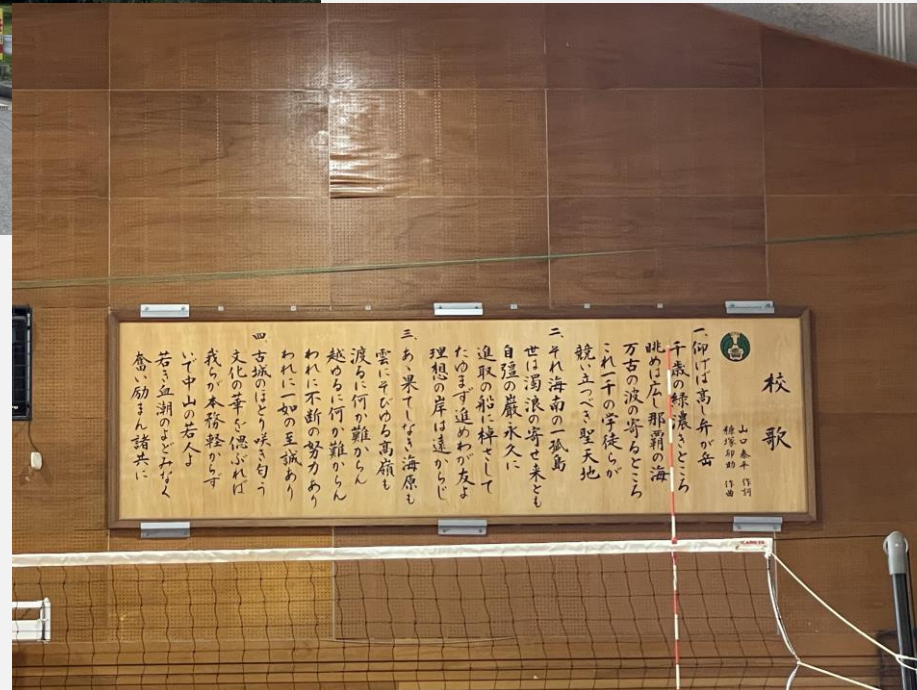 校歌
山口泰平 作詞
糠塚卯助 作曲
一、仰げば高し弁が岳
千歳の緑濃きところ
眺めは広し那覇の海
万古の波の寄るところ
これ一千の学徒らが
競い立つべき聖天地
二、それ海南の一孤島
世は濁浪の寄せ来とも
自彊の巌永久に
進取の船に棹さして
たゆまず進めわが友よ
理想の岸は遠からじ
三、あゝ果てしなき海原も
雲にそびゆる高嶺も
渡るに何か難からん
越ゆるに何か難からん
われに不断の努力あり
われに一如の至誠あり
四、古城のほとり咲き匂う
文化の華を偲ぶれば
我らが本務軽からず
いで中山の若人よ
若き血潮のよどみなく
奮い励まん諸共に